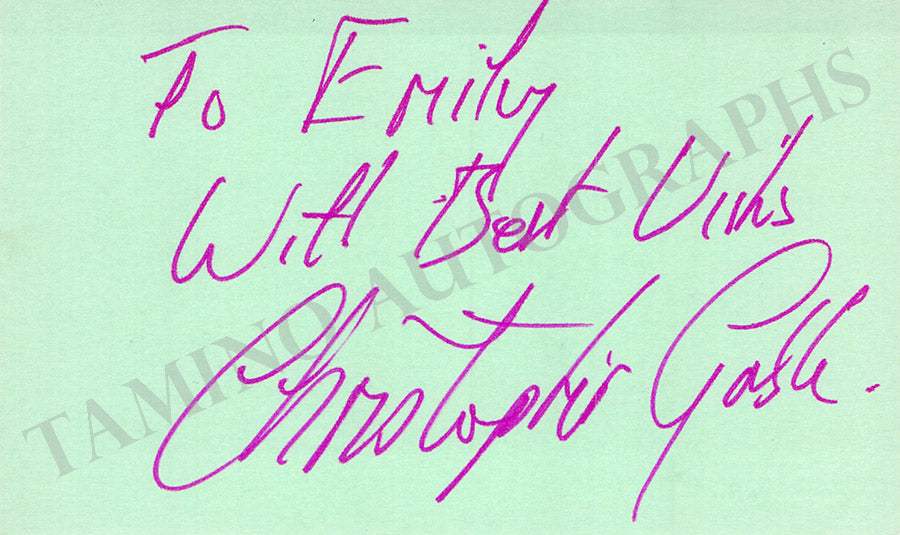 To Emily
With Best Wishes
Christopher Gable.
TAMINO AUTOGRAPHS